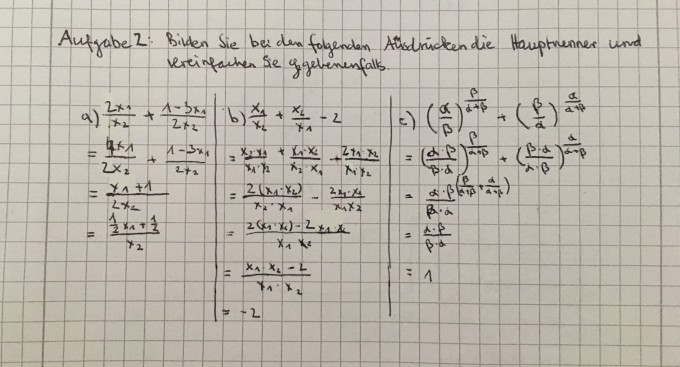 Aufgabe 2: Bilden Sie bei den folgenden Ausdrücken die Hauptnenner und
vereinfachen Sie gegebenenfalls.
a) 2x₁/x₂ + (1-3x₁)/2x₂
= 4x₁/2x₂ + (1-3x₁)/2x₂
= (x₁+1)/2x₂
= (½x₁+½)/x₂
b) x₁/x₂ + x₂/x₁ - 2
= x₂·x₁/x₁·x₂ + x₁·x₂/x₂·x₁ + 2x₁·x₂/x₁·x₂
= 2(x₁·x₂)/x₂·x₁ - 2x₁·x₂/x₁x₂
= (2(x₁·x₂)-2x₁·x₂)/x₁x₂
= (x₁·x₂-2)/x₁·x₂
= -2
c) (α/β)^(β/(α+β)) + (β/α)^(α/(α+β))
= (α·β/β·α)^(β/(α+β)) + (β·α/α·β)^(α/(α+β))
= α·β^(β/(α+β)+α/(α+β))/β·α
= α·β/β·α
= 1